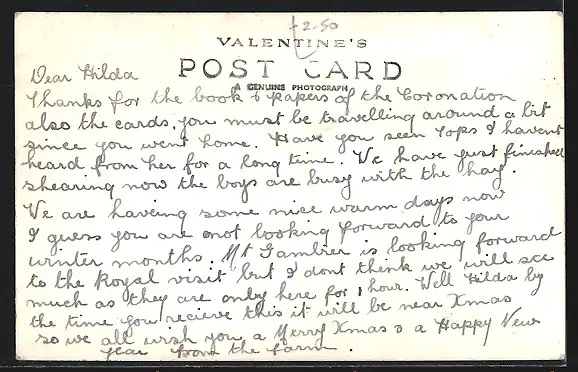 £2-50
VALENTINE'S
POST CARD
A GENUINE PHOTOGRAPH
Dear Hilda
Thanks for the book & papers of the Coronation
also the cards, you must be travelling around a bit
since you went home. Have you seen Tops I havent
heard from her for a long time. We have just finished
shearing now the boys are busy with the hay.
We are haveing some nice warm days now
I guess you are not looking forward to your
winter months. Mt Gambier is looking forward
to the Royal visit but I dont think we will see
much as they are only here for 1 hour. Well Hilda by
the time you recieve this it will be near Xmas
so we all wish you a Merry Xmas & a Happy New
year from the farm.